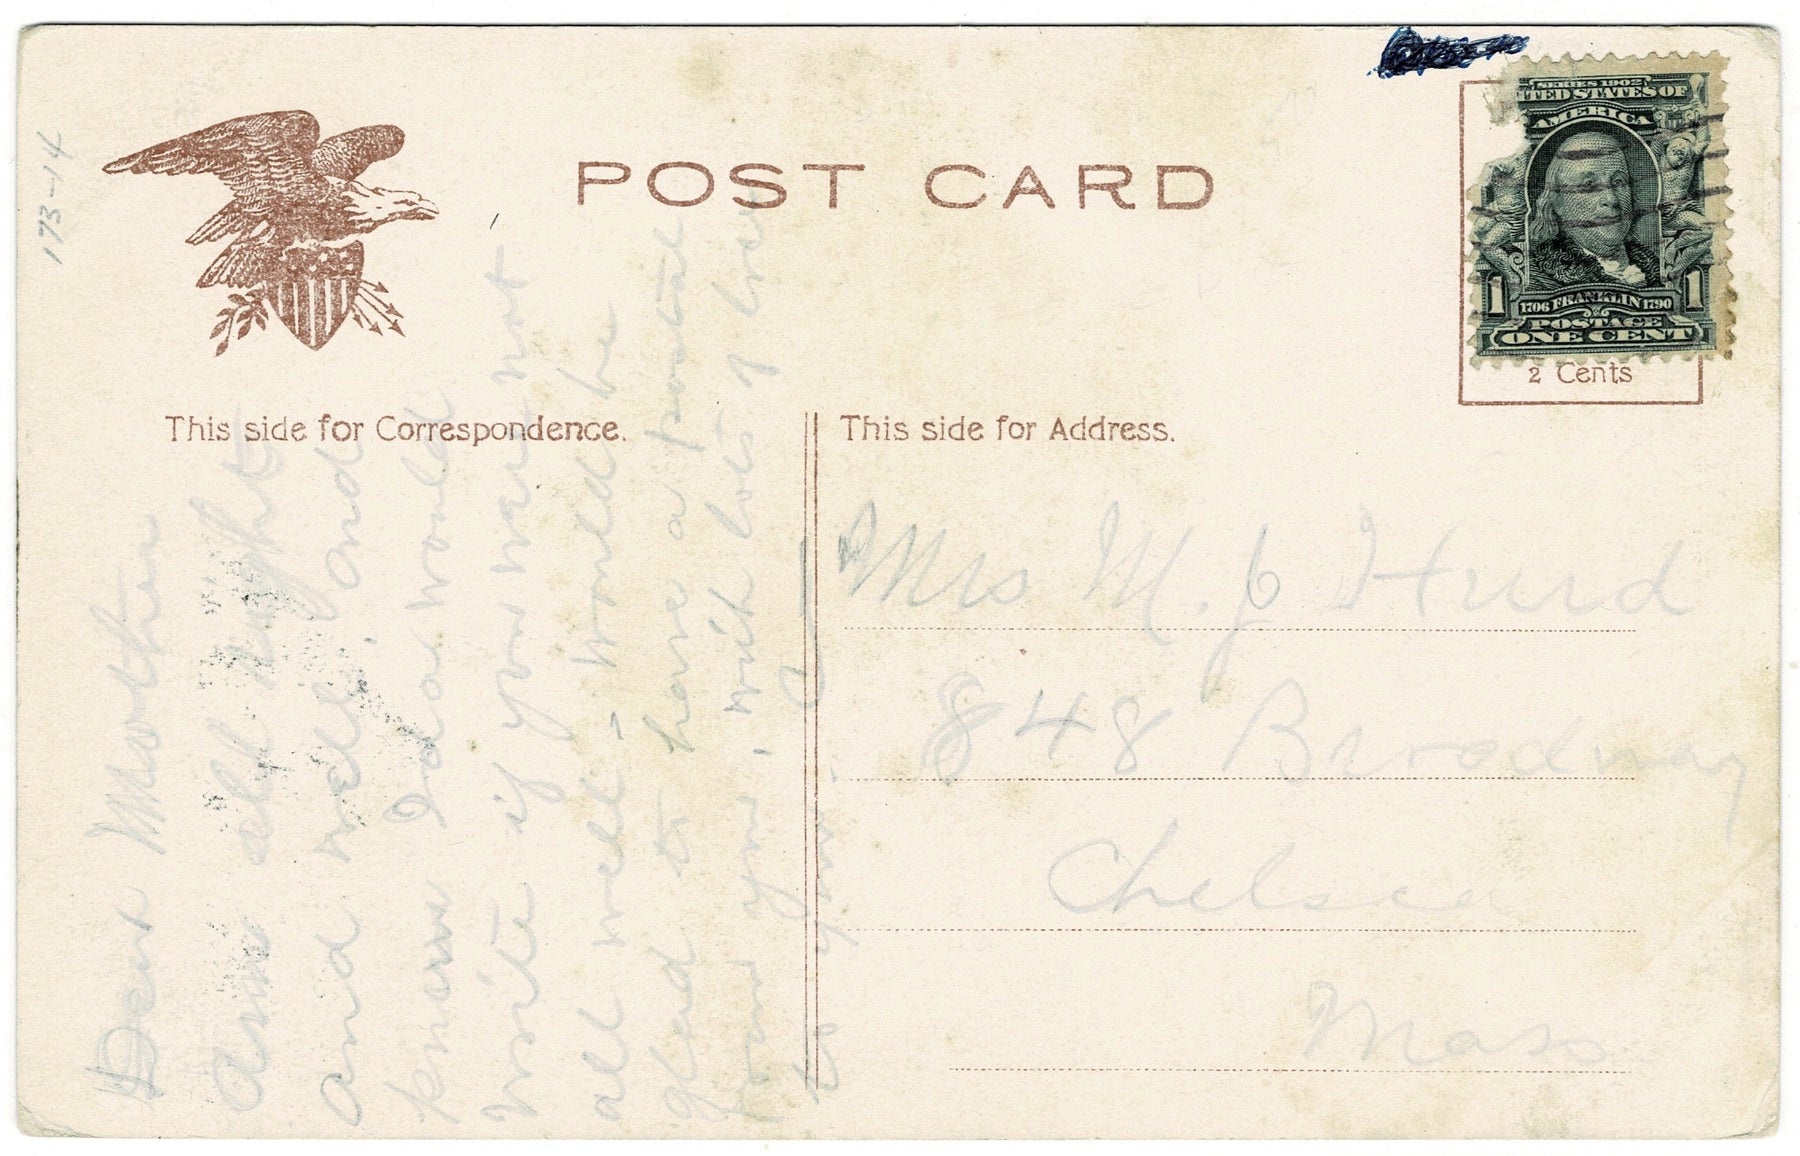 173-14
POST CARD
SERIES 1902
UNITED STATES OF
AMERICA
1 1706 FRANKLIN 1790 1
POSTAGE
ONE CENT
2 Cents
This side for Correspondence.
This side for Address.
Dear Mother
am all right
and well, and
know I dar would
write if you were not
all well - would be
glad to have a postal
from you, with lots of love
to you.
Mrs M. J Hurd
848 Broadway
Chelsea
Mass